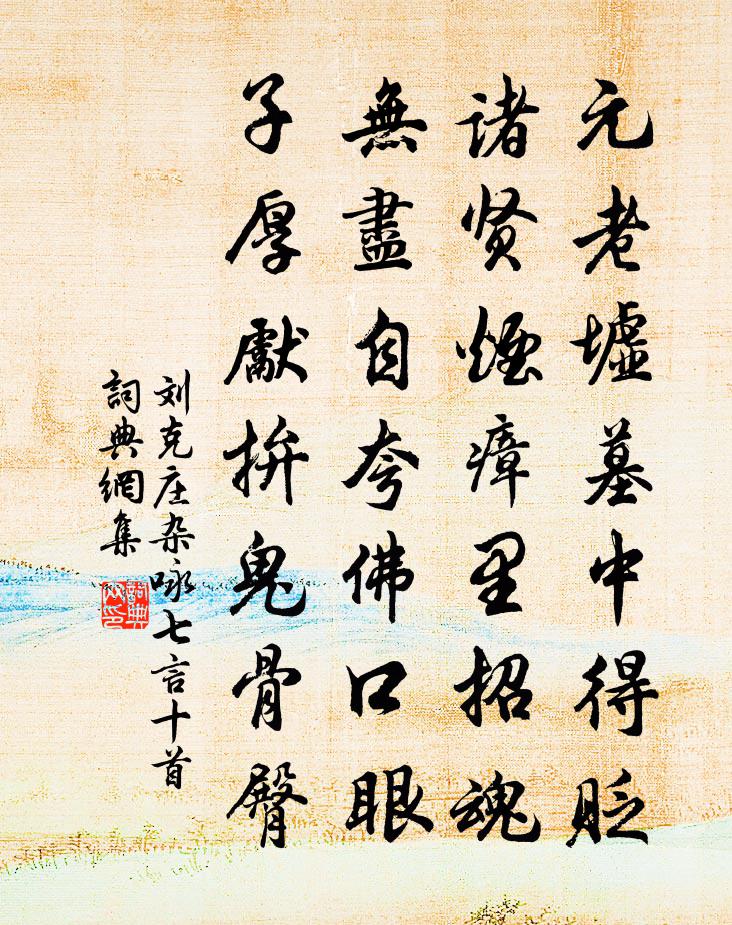 元老墟墓中得贬
诸贤烟瘴里招魂
無盡自夸佛口眼
子厚獻拚鬼骨臀
刘克庄杂咏七言十首
詞典網集